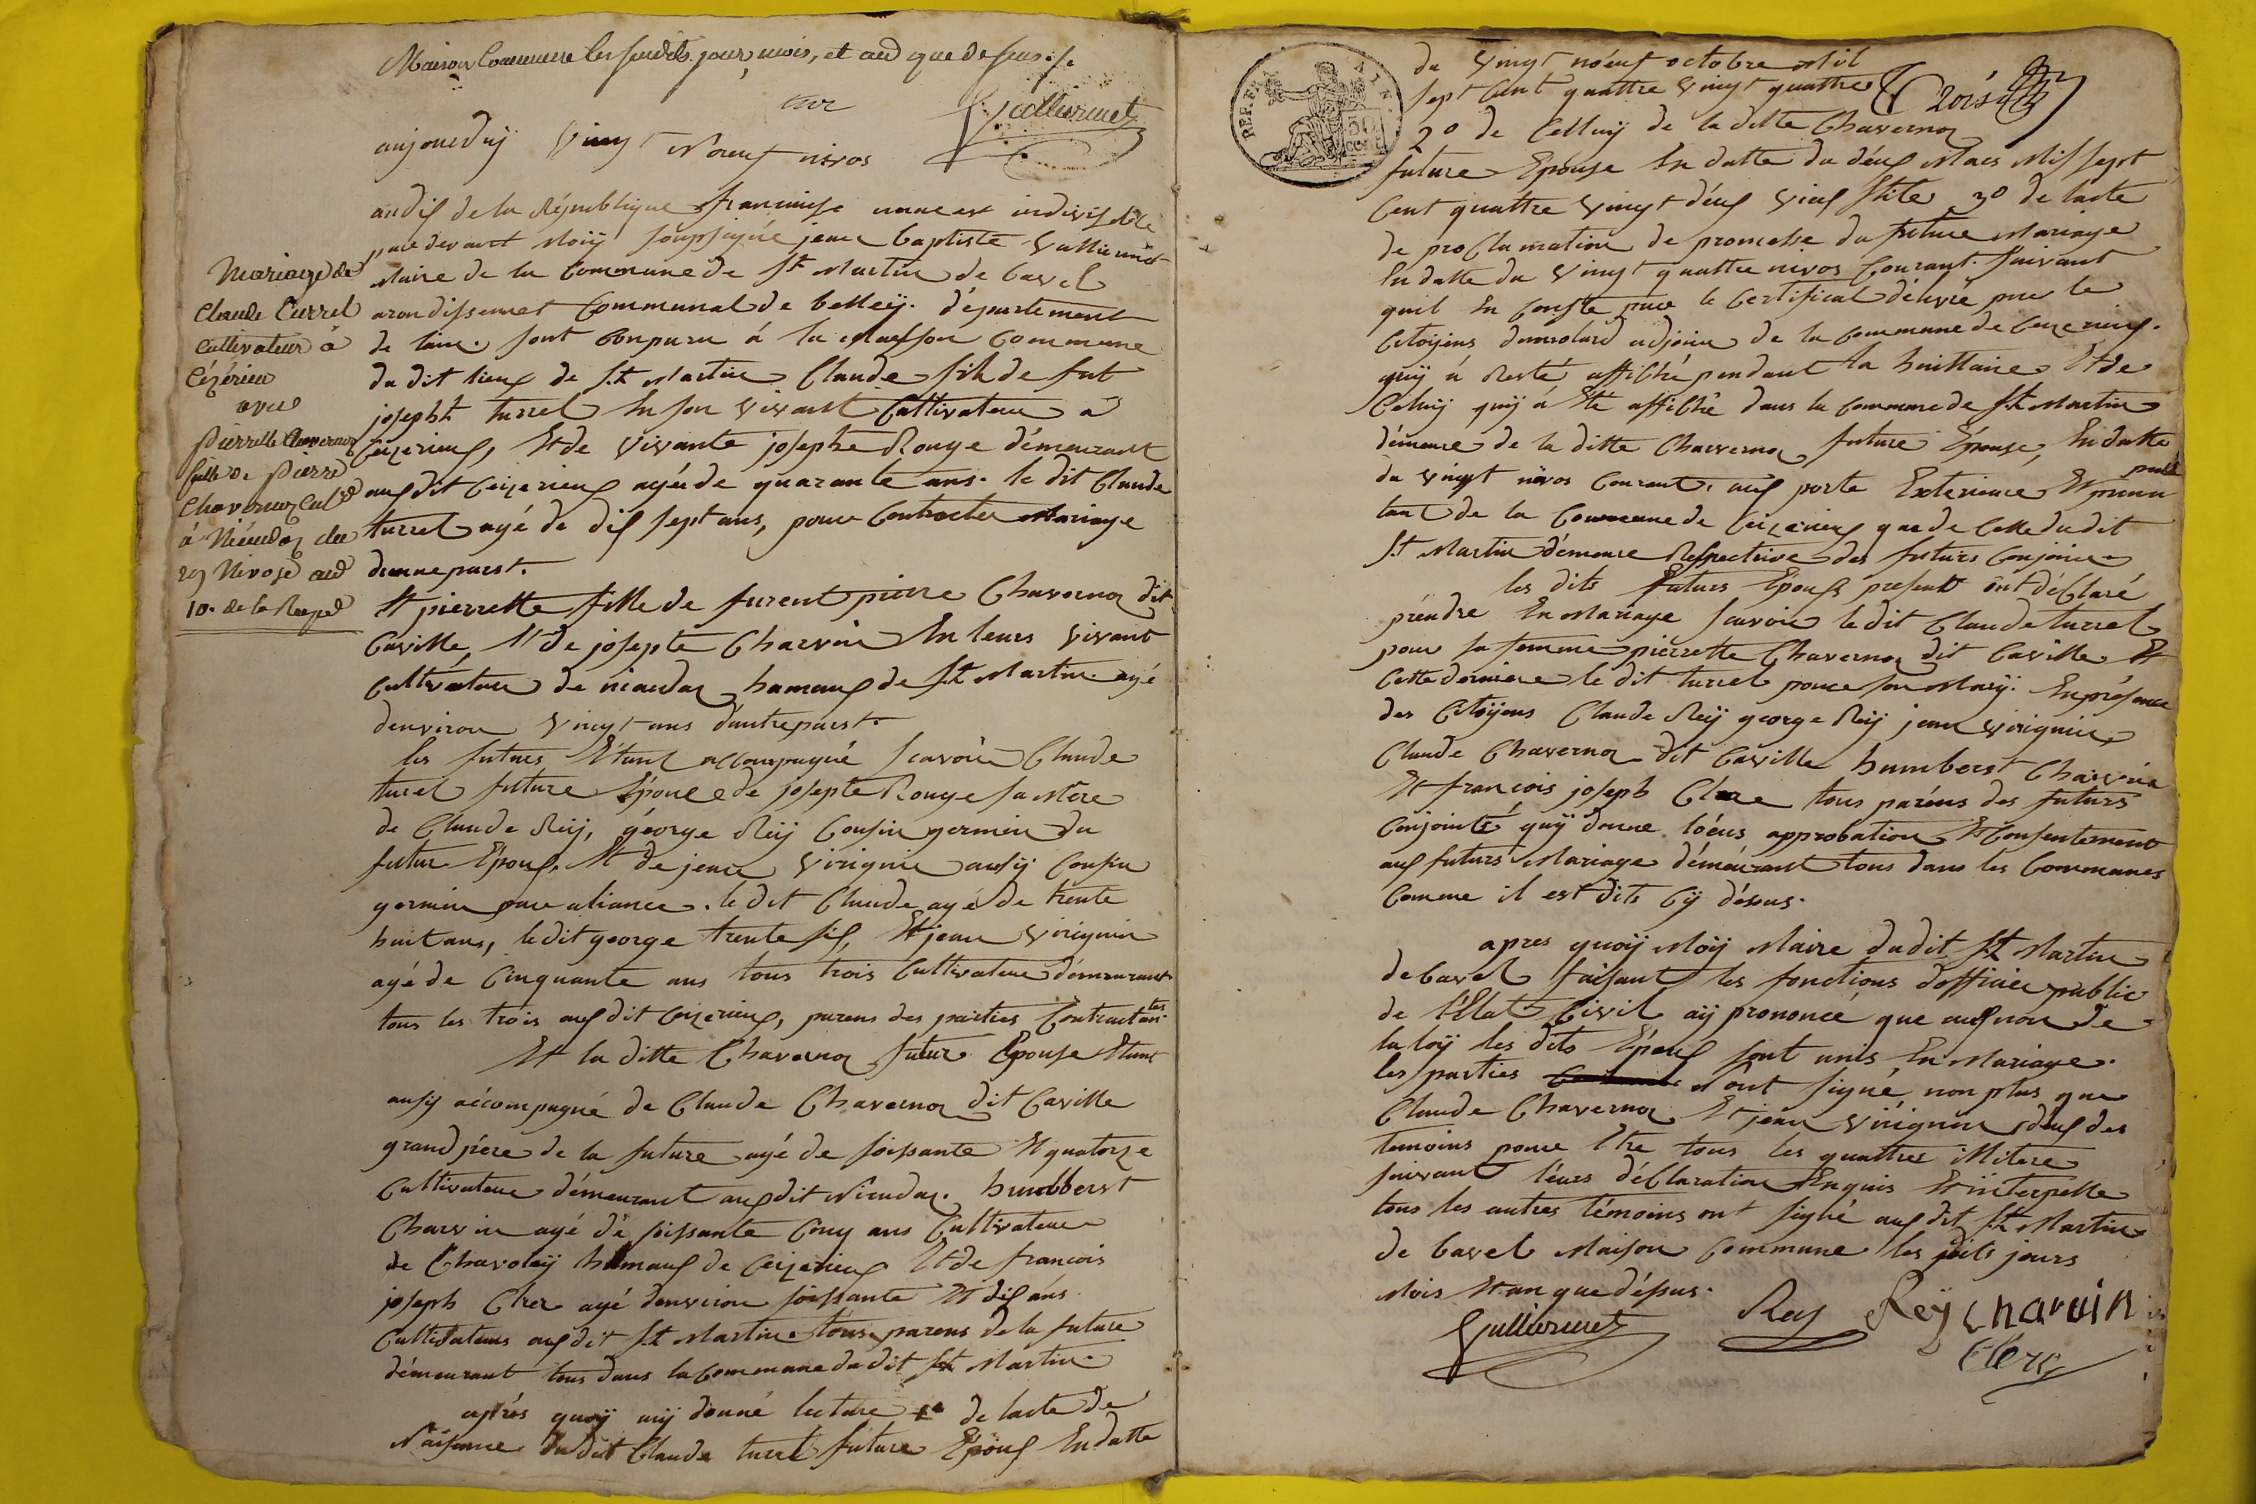 Maison Commune les susdits jour, mois, et an que dessus
Vulliermet
aujourduÿ vingt Noeuf nivos
an dix de la République francaise une et indivisible
pardevant Moÿ soussigné jean baptiste Vulliermet
Maire de la Commune de St Martin de bavel
arondissemet Communal de belleÿ. département
de lain. sont conparu á la maison Commune
du dit lieux de St Martin Claude fils de fut
josepht turrel En son vivant Cultivateur a
Ceizerieux, Et de vivante josephte Rouge démeurant
aux dit Ceizerieux agée de quarante ans. le dit Claude
turrel agé de dix sept ans, pour Contracter Mariage
dunne parst.
Mariage de
Claude Turrel
Cultivateur à
Cézérieu
avec
Pierrette Chavernoz
fille de Pierre
Chavernoz Cultr
à Niéudoz du
29 Nivose an
10. de la Repe
Et pierrette fille de furent pierre Chavernoz dit
Caville, Et de josepte Charvin En leurs vivant
Cultivateur de niaudaz hamaux de St Martin. agé
denviron vingt ans d'autre parst.
les futurs Etant accompagné scavoir Claude
turel future Epoux de josepte Rouge sa Mère
de Claude Reÿ, géorge Reÿ Cousin germin du
futur Epoux, Et de jean virignin aussÿ Cousin
germin par aliance. le dit Claude agé de trente
huit ans, le dit george trente six, Et jean virignin
agé de Cinquante ans tous trois Cultivateur démeurant
tous les trois aux dit Ceizerieux, parens des parties Contractantes
Et la ditte Chavernoz futur Epouse Etant
aussÿ accompagné de Claude Chavernoz dit Caville
grand pére de la future agé de soissante Et quatorze
Cultivateur démeurant aux dit Niaudaz. humbberst
Charvin agé de soissante Cinq ans Cultivateur
de Chavoleÿ hamaux de Ceizerieux Et de francois
joseph Clerc agé denviron soissante Et dix ans
Cultivateurs aux dit St Martin tous parens de la future
démeurant tous dans la Commune du dit St Martin.
aprés quoÿ aÿ donné lecture 1° de lacte de
Naissance du dit Claude turrel future Epoux En datte
du vingt nóeuf octobre Mil
sept Cent quattre vingt quattre
2° de Celluÿ de la ditte Chavernoz
future Epouse En datte du déux Mars Mil sept
Cent quattre vingt déux vieux stile 3° de lacte
de proclamation de promesse du future Mariage
En datte du vingt quattre nivos Courant. suivant
quil En Conste par le Certificat délivré par le
Citoÿens dumolard adjoin de la Commune de Ceizerieux.
quÿ á Resté affiché pendant la huittaine Et de
Celuÿ quÿ á Eté affiché dans la Commune de St Martin
démeure de la ditte Chavernoz future Epouse, En datte
du vingt nivos Courant. aux porte Exterieure Et
tant de la Commune de Ceizerieux que de Celle du dit
St Martin démeure Respective des futurs Conjoin
les dits futurs Epoux présent ont déClaré
préndre En Mariage scavoir le dit Claude turrel
pour sa femme pierrette Chavernoz dit Caville Et
Cette derniere le dit turrel pour son Marÿ. En présence
des Citoÿens Claude Reÿ george Reÿ jean virignin
Claude Chavernoz dit Caville humberst Charvin
Et francois joseph Clerc tous paréns des futurs
Conjoints quÿ donne loéurs approbation Et Consentement
aux futurs Mariage déméurant tous dans les Communes
Comme il est dits Cÿ désus.
apres quoÿ Moÿ Maire du dit St Martin
de bavel faisant les fonctions d'officier public
de l'Etat Civil aÿ prononcé que aux nom de
la loÿ les dits Epoux sont unis En Mariage.
les parties N'ont signé non plus que
Claude Chavernoz Et jean virignin deux des
temoins pour Etre tous les quattres illitere
suivant léurs déClaration Enquis Et interpelle
tous les autres témoins ont signé aux dit St Martin
de bavel Maison Commune les dits jours
Mois Et an que désus.
Vulliermet Rey Reÿ charvin
Clerc
REP. FRA
50